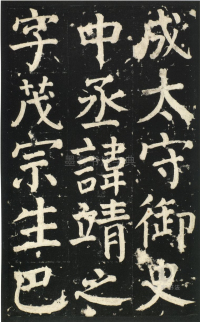 成太守御史
中丞諱靖之
字茂宗生巴